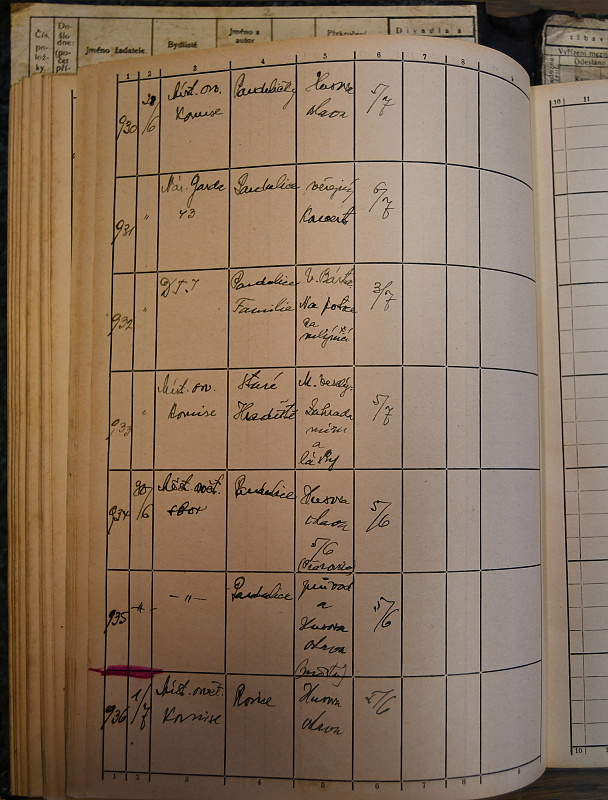 Čís.
po-
lož-
ky.
Do-
šlo
dne:
(po-
čet
pří-
Jméno žadatele.
Bydliště
Jméno a
autor
Divadla a
Vyřízení mezi
Odesláno
1 2 3 4 5 6 7 8 9
10 11
930
Míst. osv.
Komise
Pardubičky
Husova
oslava
5/7
931 "
Nár. Garda
Pardubice
veřejný
Koncert
6/7
932 "
D T J
Pardubice
V. Bárta:
3/7
933 "
Míst. osv.
Komise
Staré
Hradiště
Zahrada
míru
a
lásky
5/7
934
30/6
Míst. osvět.
sbor
Pardubice
Husova
oslava
5/6
5/6
935
— " —
Pardubice
průvod
a
Husova
oslava
5/6
936
1/7
Míst. osvět.
Komise
Husova
oslava
5/6
1 2 3 4 5 6 7 8 9
10